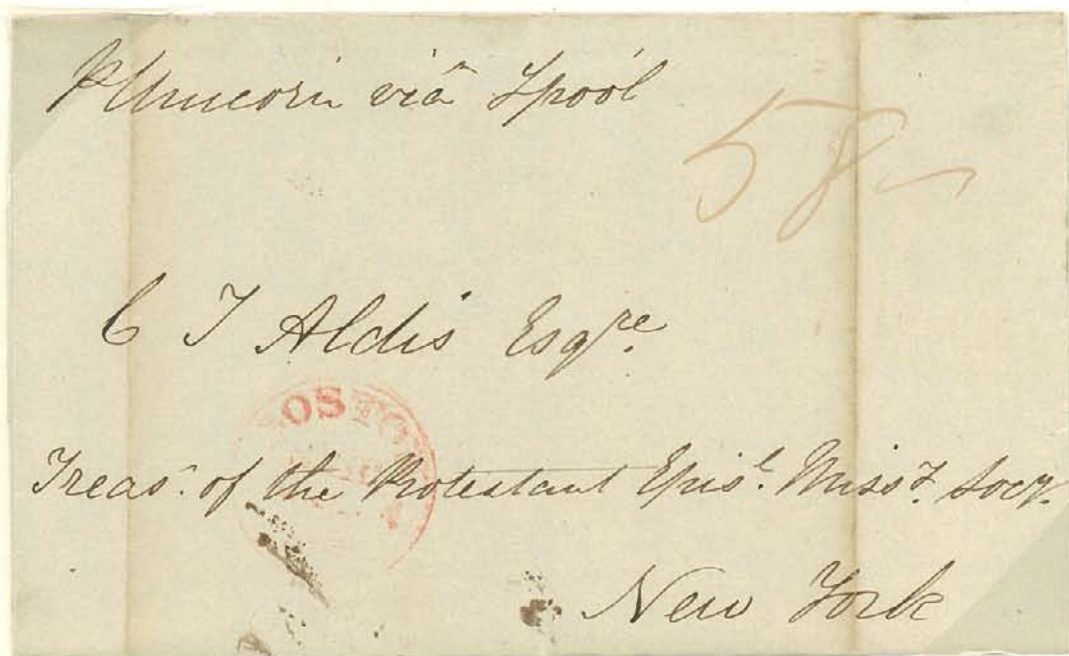 P Unicorn viâ Lpool
58
C T Aldis Esqre.
BOSTON
Treas. of the Protestant Episl. Missy. Socy.
New York